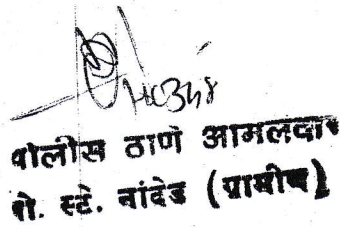 पोलीस ठाणे आमलदार
पो. स्टे. नांदेड (ग्रामीण)